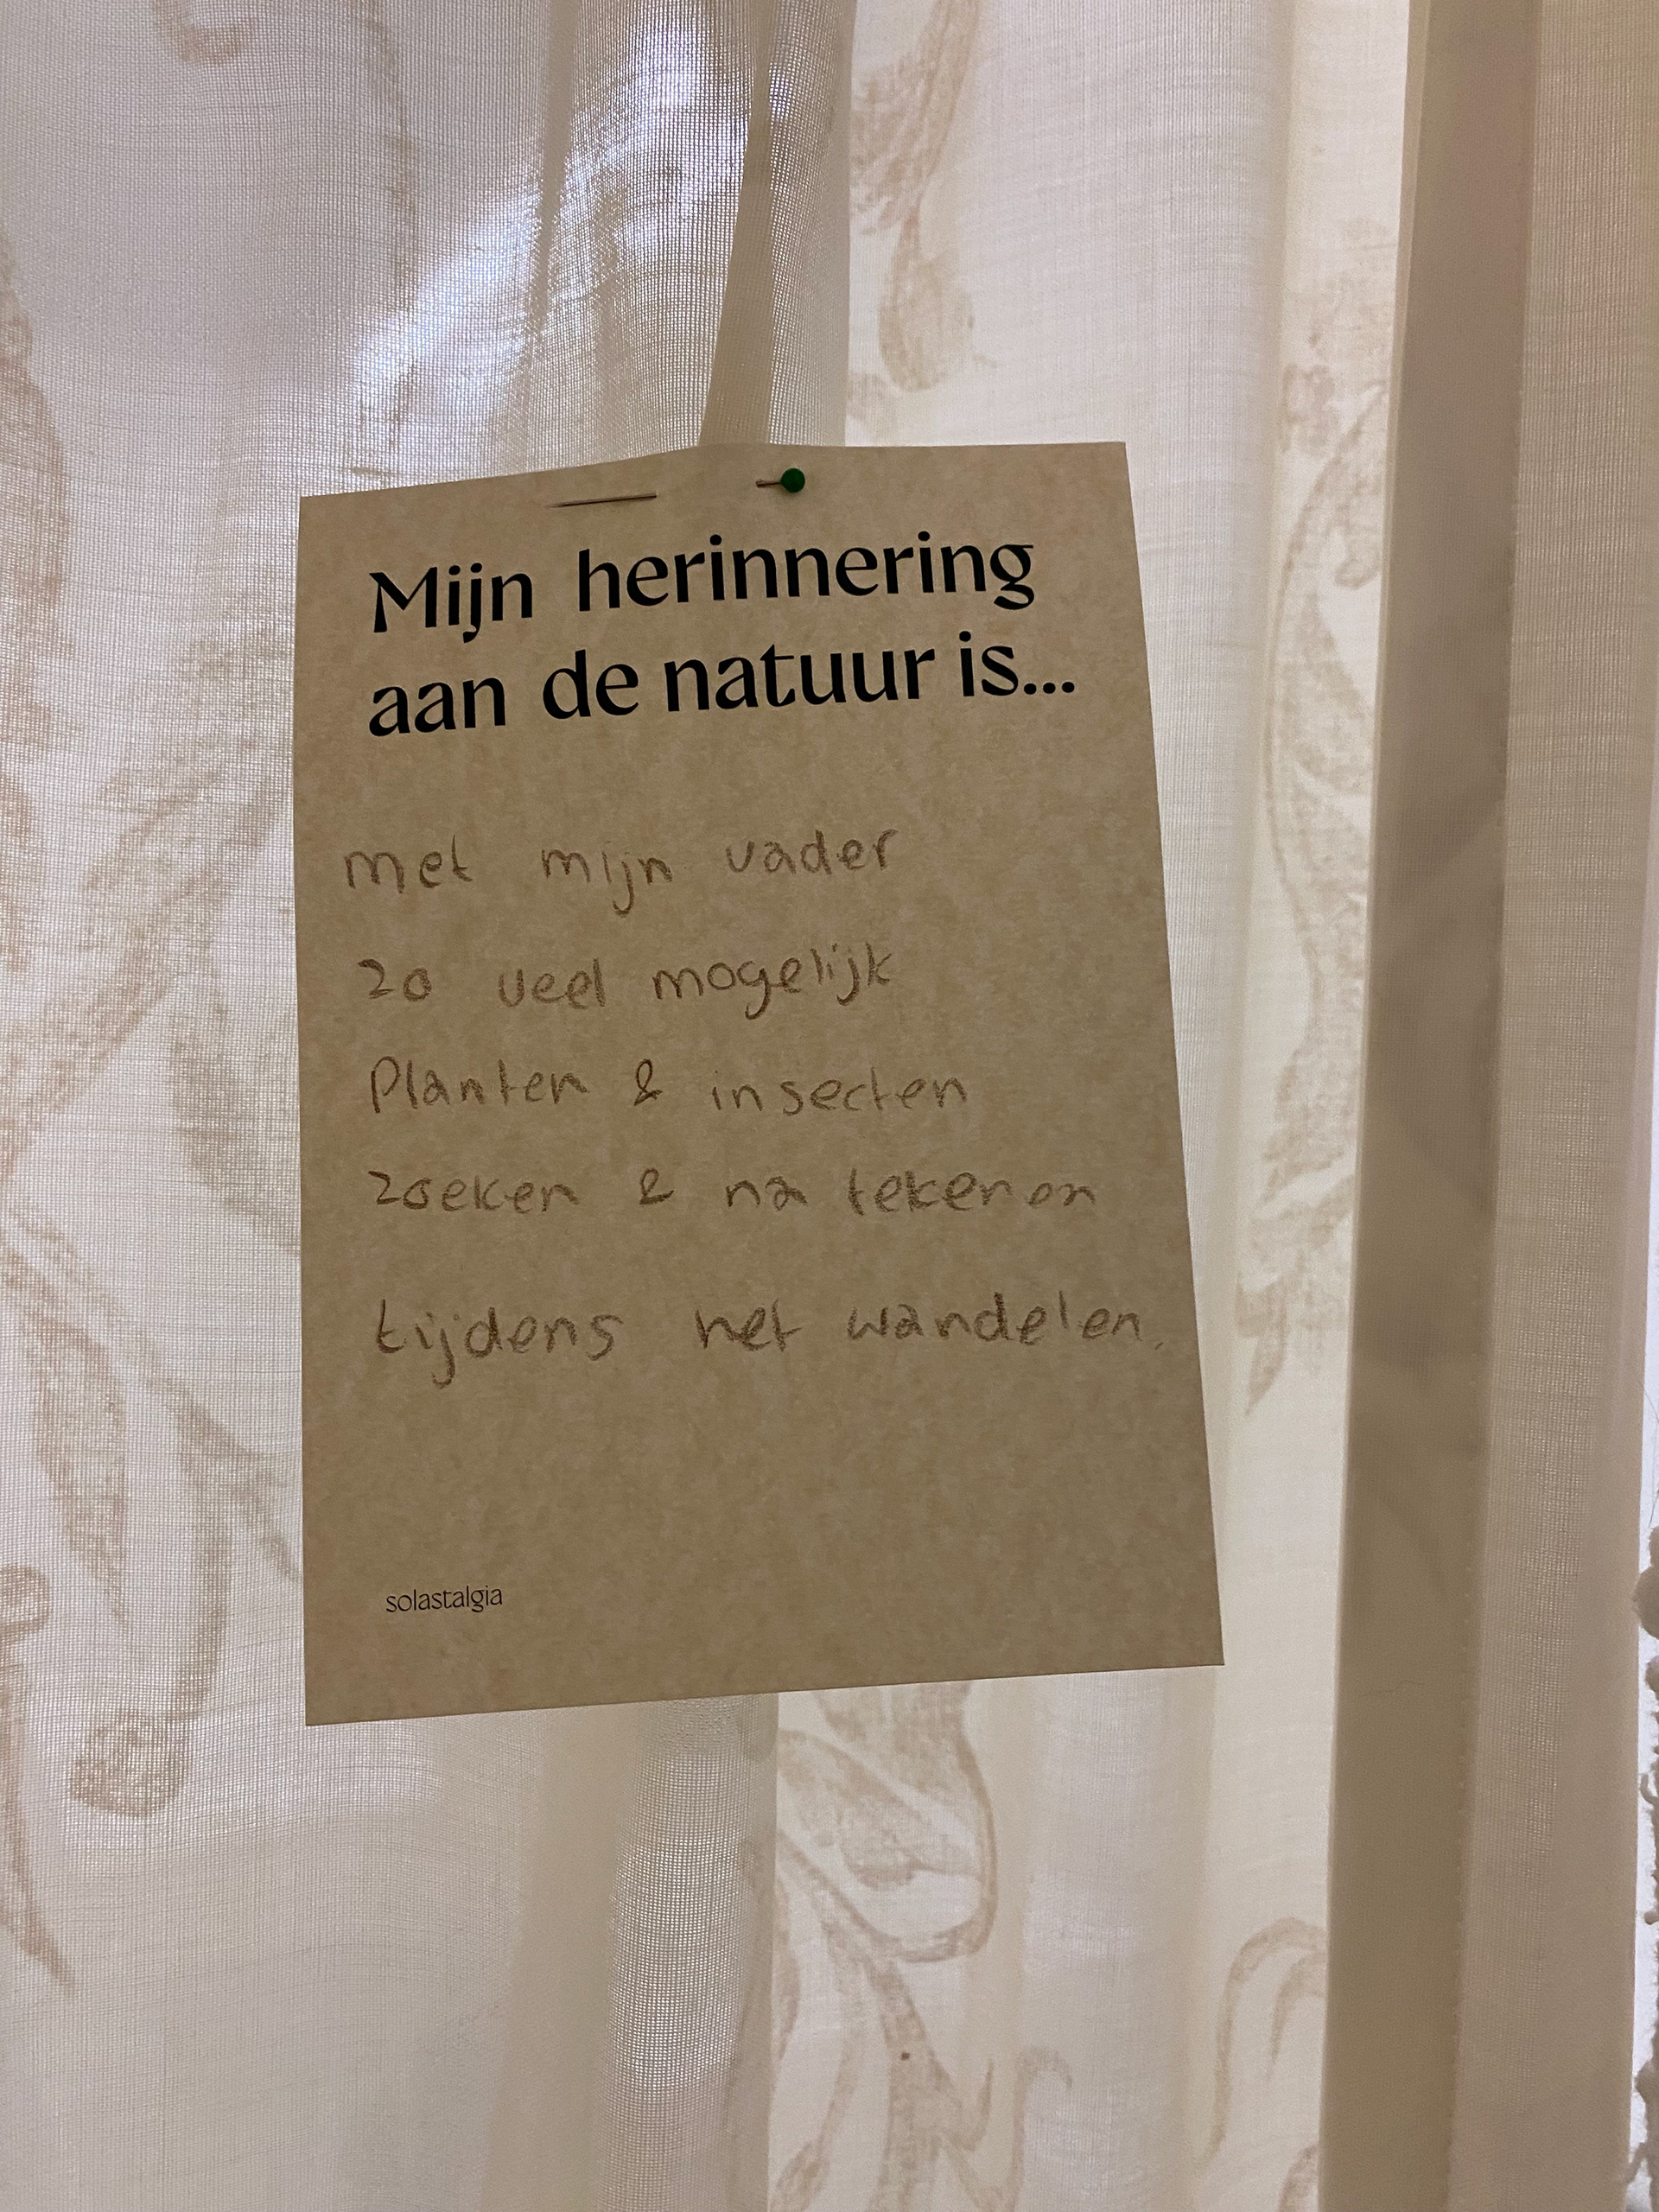 Mijn herinnering
aan de natuur is...
met mijn vader
zo veel mogelijk
Planten & insecten
zoeken & na tekenen
tijdens het wandelen.
solastalgia